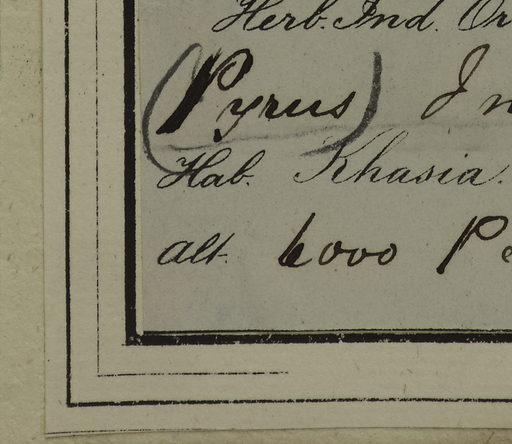 Herb. Ind. Or
(Pyrus) In
Hab. Khasia.
alt. 6000 Pe